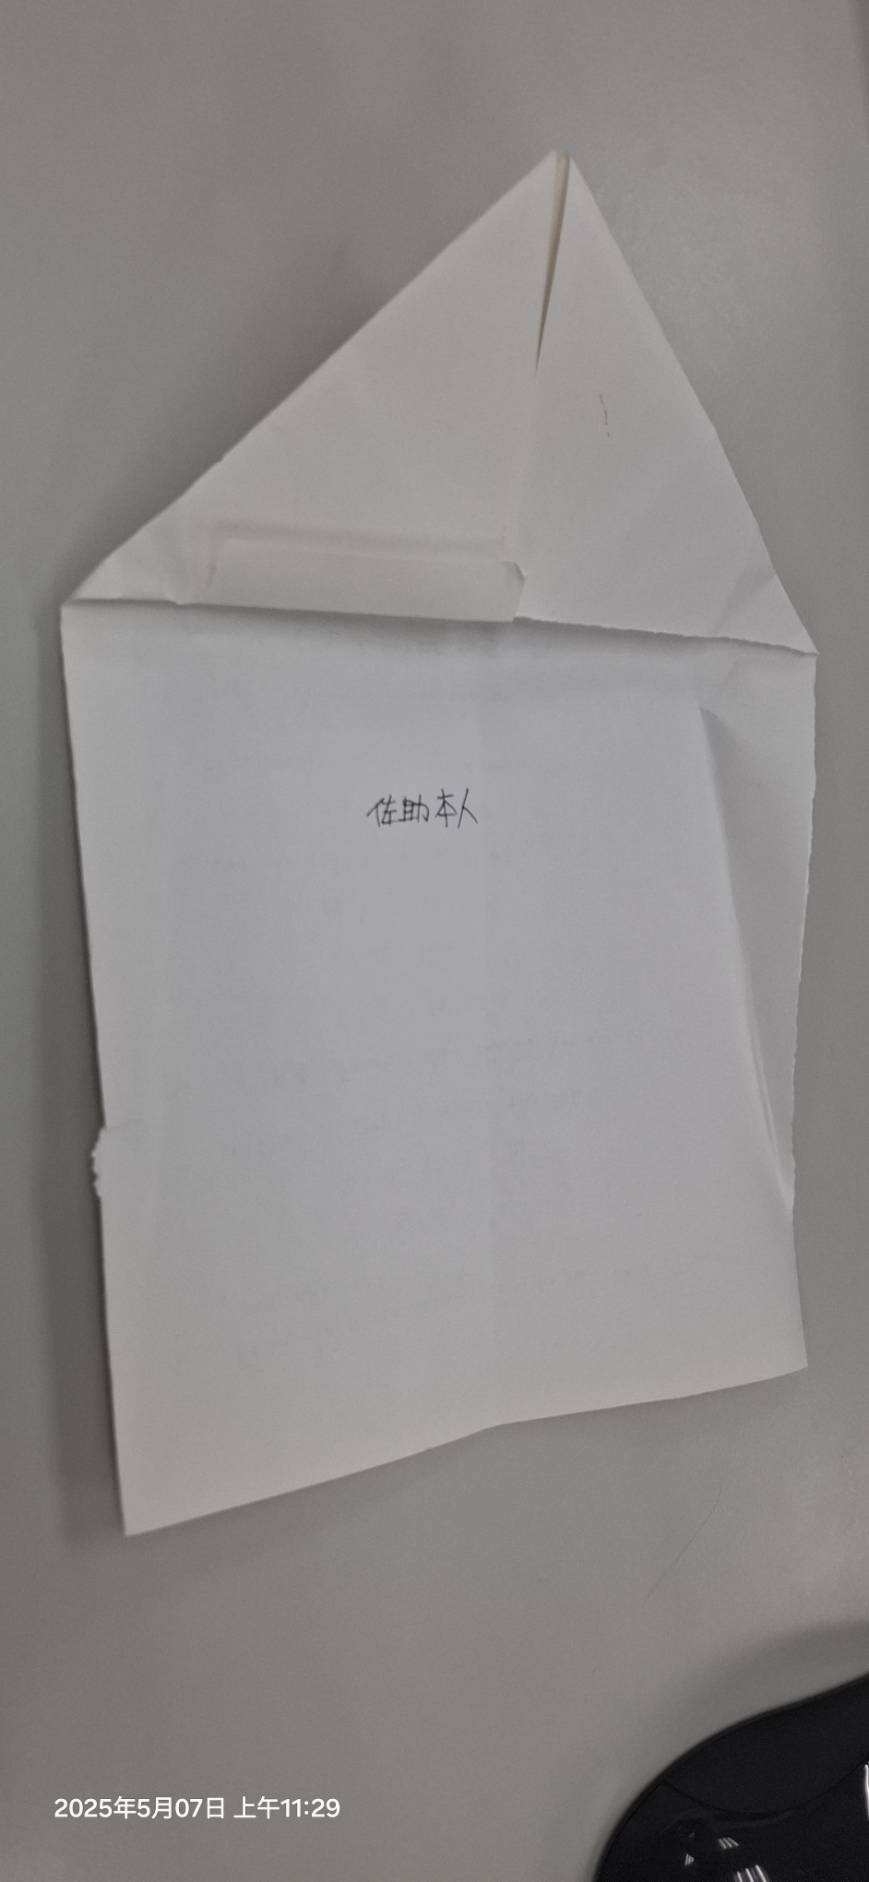 佐助本人
2025年5月07日 上午11:29